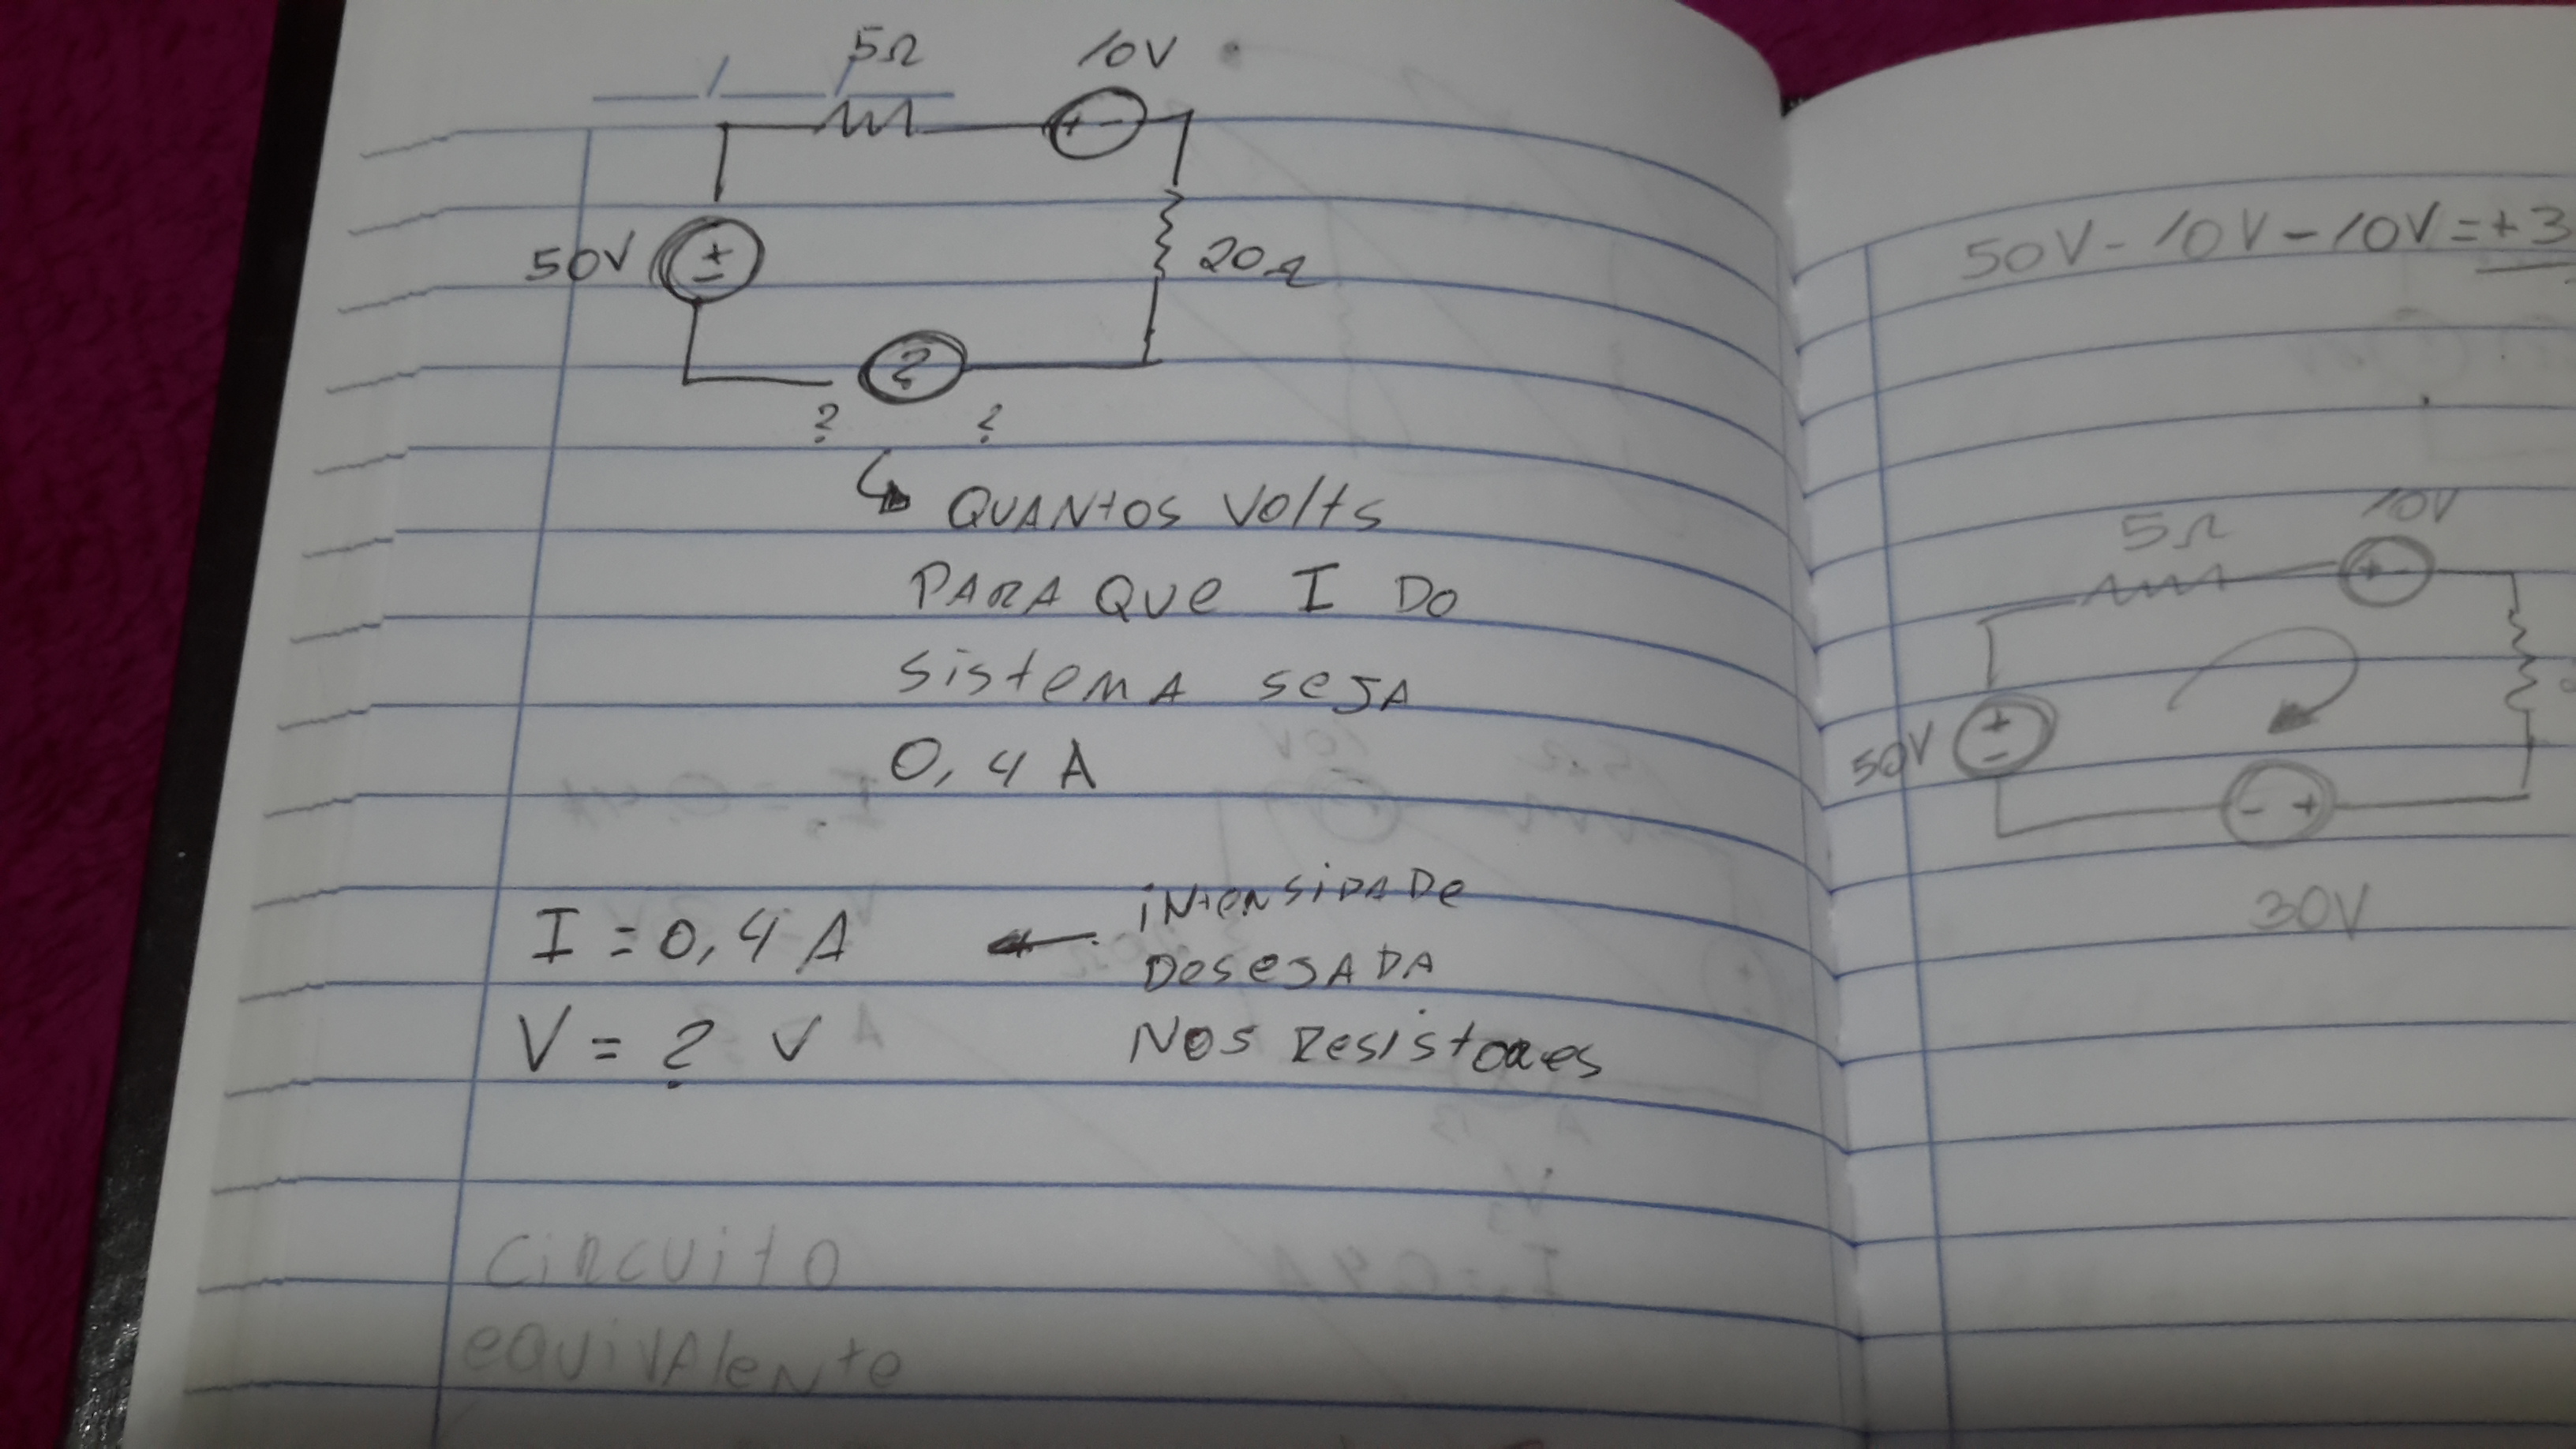 5Ω 10V
50V + -
+ -
20Ω
?
? ?
QUANtOS VOltS
PARA QUE I DO
SiStEMA SEJA
0,4 A
I = 0,4 A ← iNtENSiDADE
DESEJADA
V = ? V NOS RESiStORES
CiRCUitO
EQUiVAlENtE
50V - 10V - 10V = +3
5Ω 10V
+ -
50V + -
- +
30V